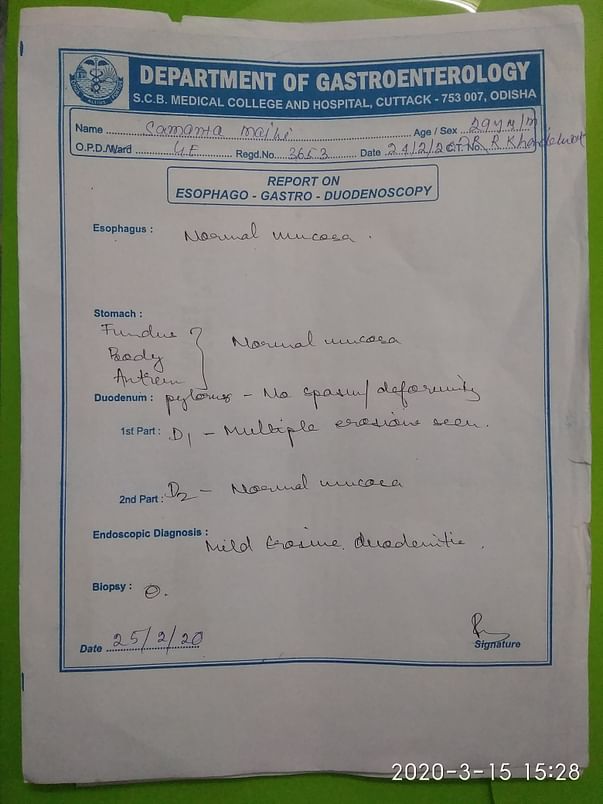 DEPARTMENT OF GASTROENTEROLOGY
S.C.B. MEDICAL COLLEGE AND HOSPITAL, CUTTACK - 753 007, ODISHA
Name Samanta Age / Sex 29 yr/m
O.P.D./Ward Regd.No. 3653 Date 24/2/20 C.T. No. R Khandelwal
REPORT ON
ESOPHAGO - GASTRO - DUODENOSCOPY
Esophagus : Normal mucosa .
Stomach :
Fundus
Body } Normal mucosa
Antrum
Duodenum : pylorus - No spasm/deformity
1st Part : D1 - Multiple erosions seen.
2nd Part : D2 - Normal mucosa
Endoscopic Diagnosis : Mild Erosive duodenitis .
Biopsy : O.
Date 25/2/20
Signature
2020-3-15 15:28